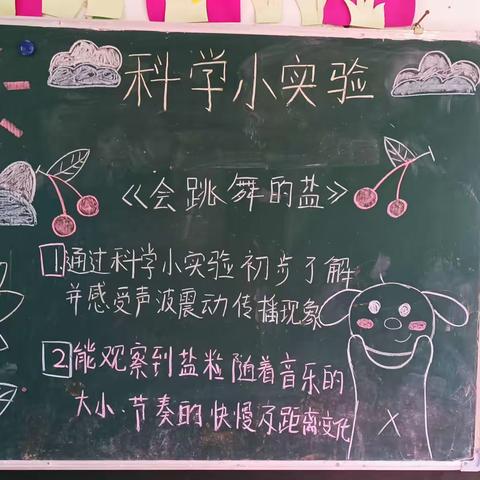 科学小实验
《会跳舞的盐》
1.通过科学小实验初步了解
并感受声波震动传播现象
2.能观察到盐粒随着音乐的
大小、节奏的快慢及距离变化